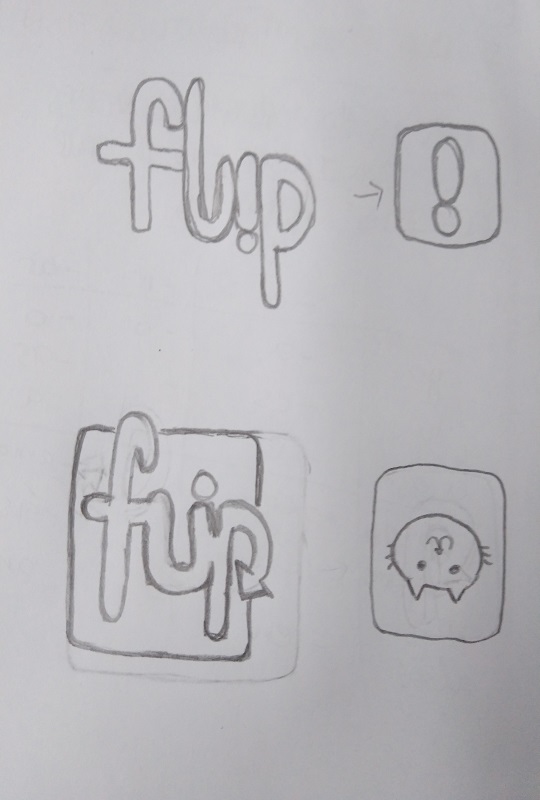 fl!p → !
flip